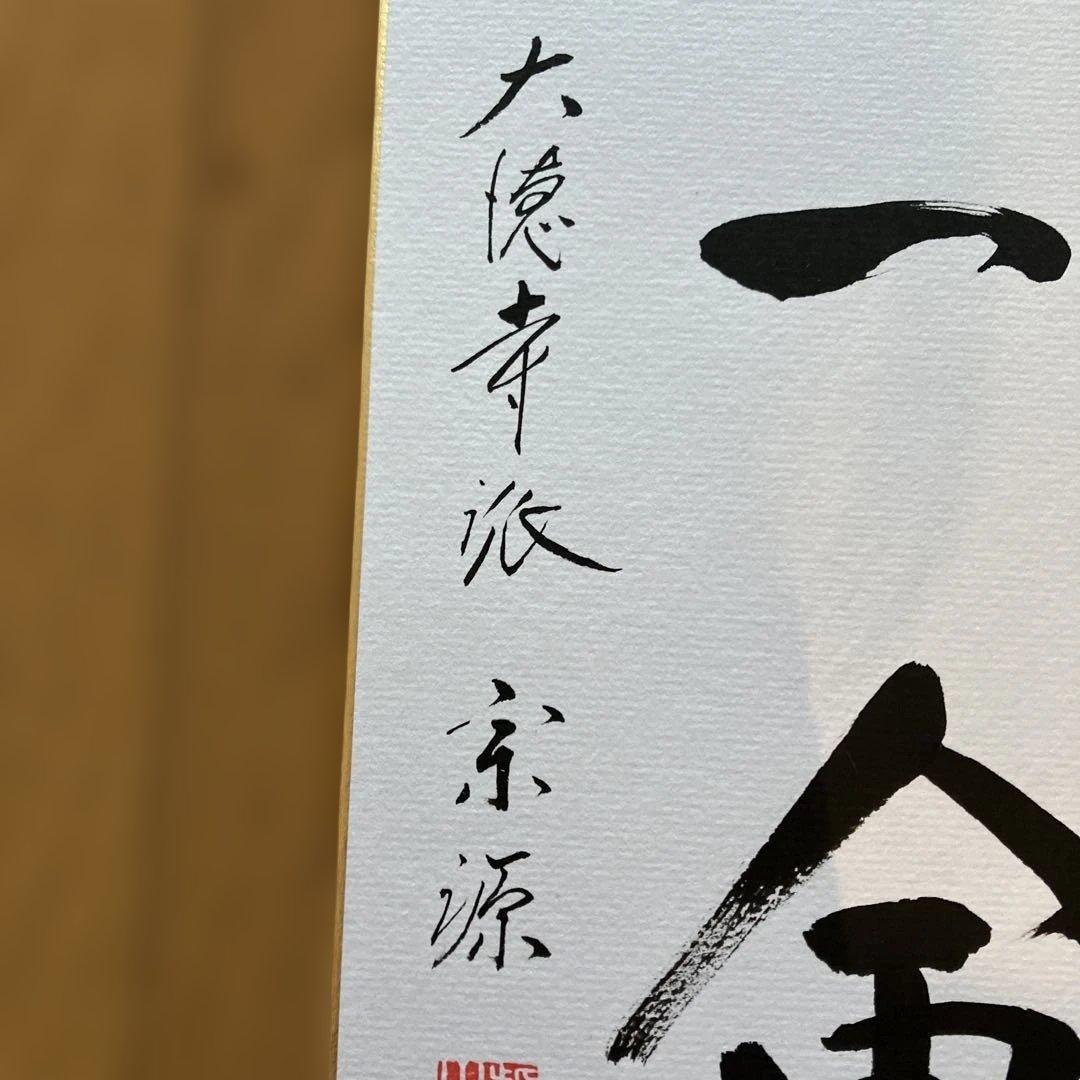 一會
大徳寺派 宗源